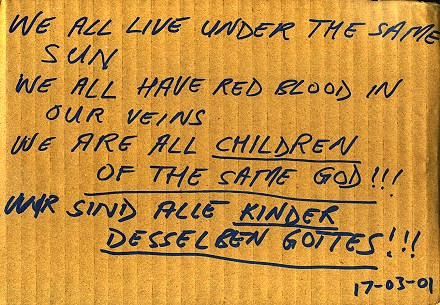 WE ALL LIVE UNDER THE SAME
SUN
WE ALL HAVE RED BLOOD IN
OUR VEINS
WE ARE ALL CHILDREN
OF THE SAME GOD!!!
WIR SIND ALLE KINDER
DESSELBEN GOTTES!!!
17-03-01